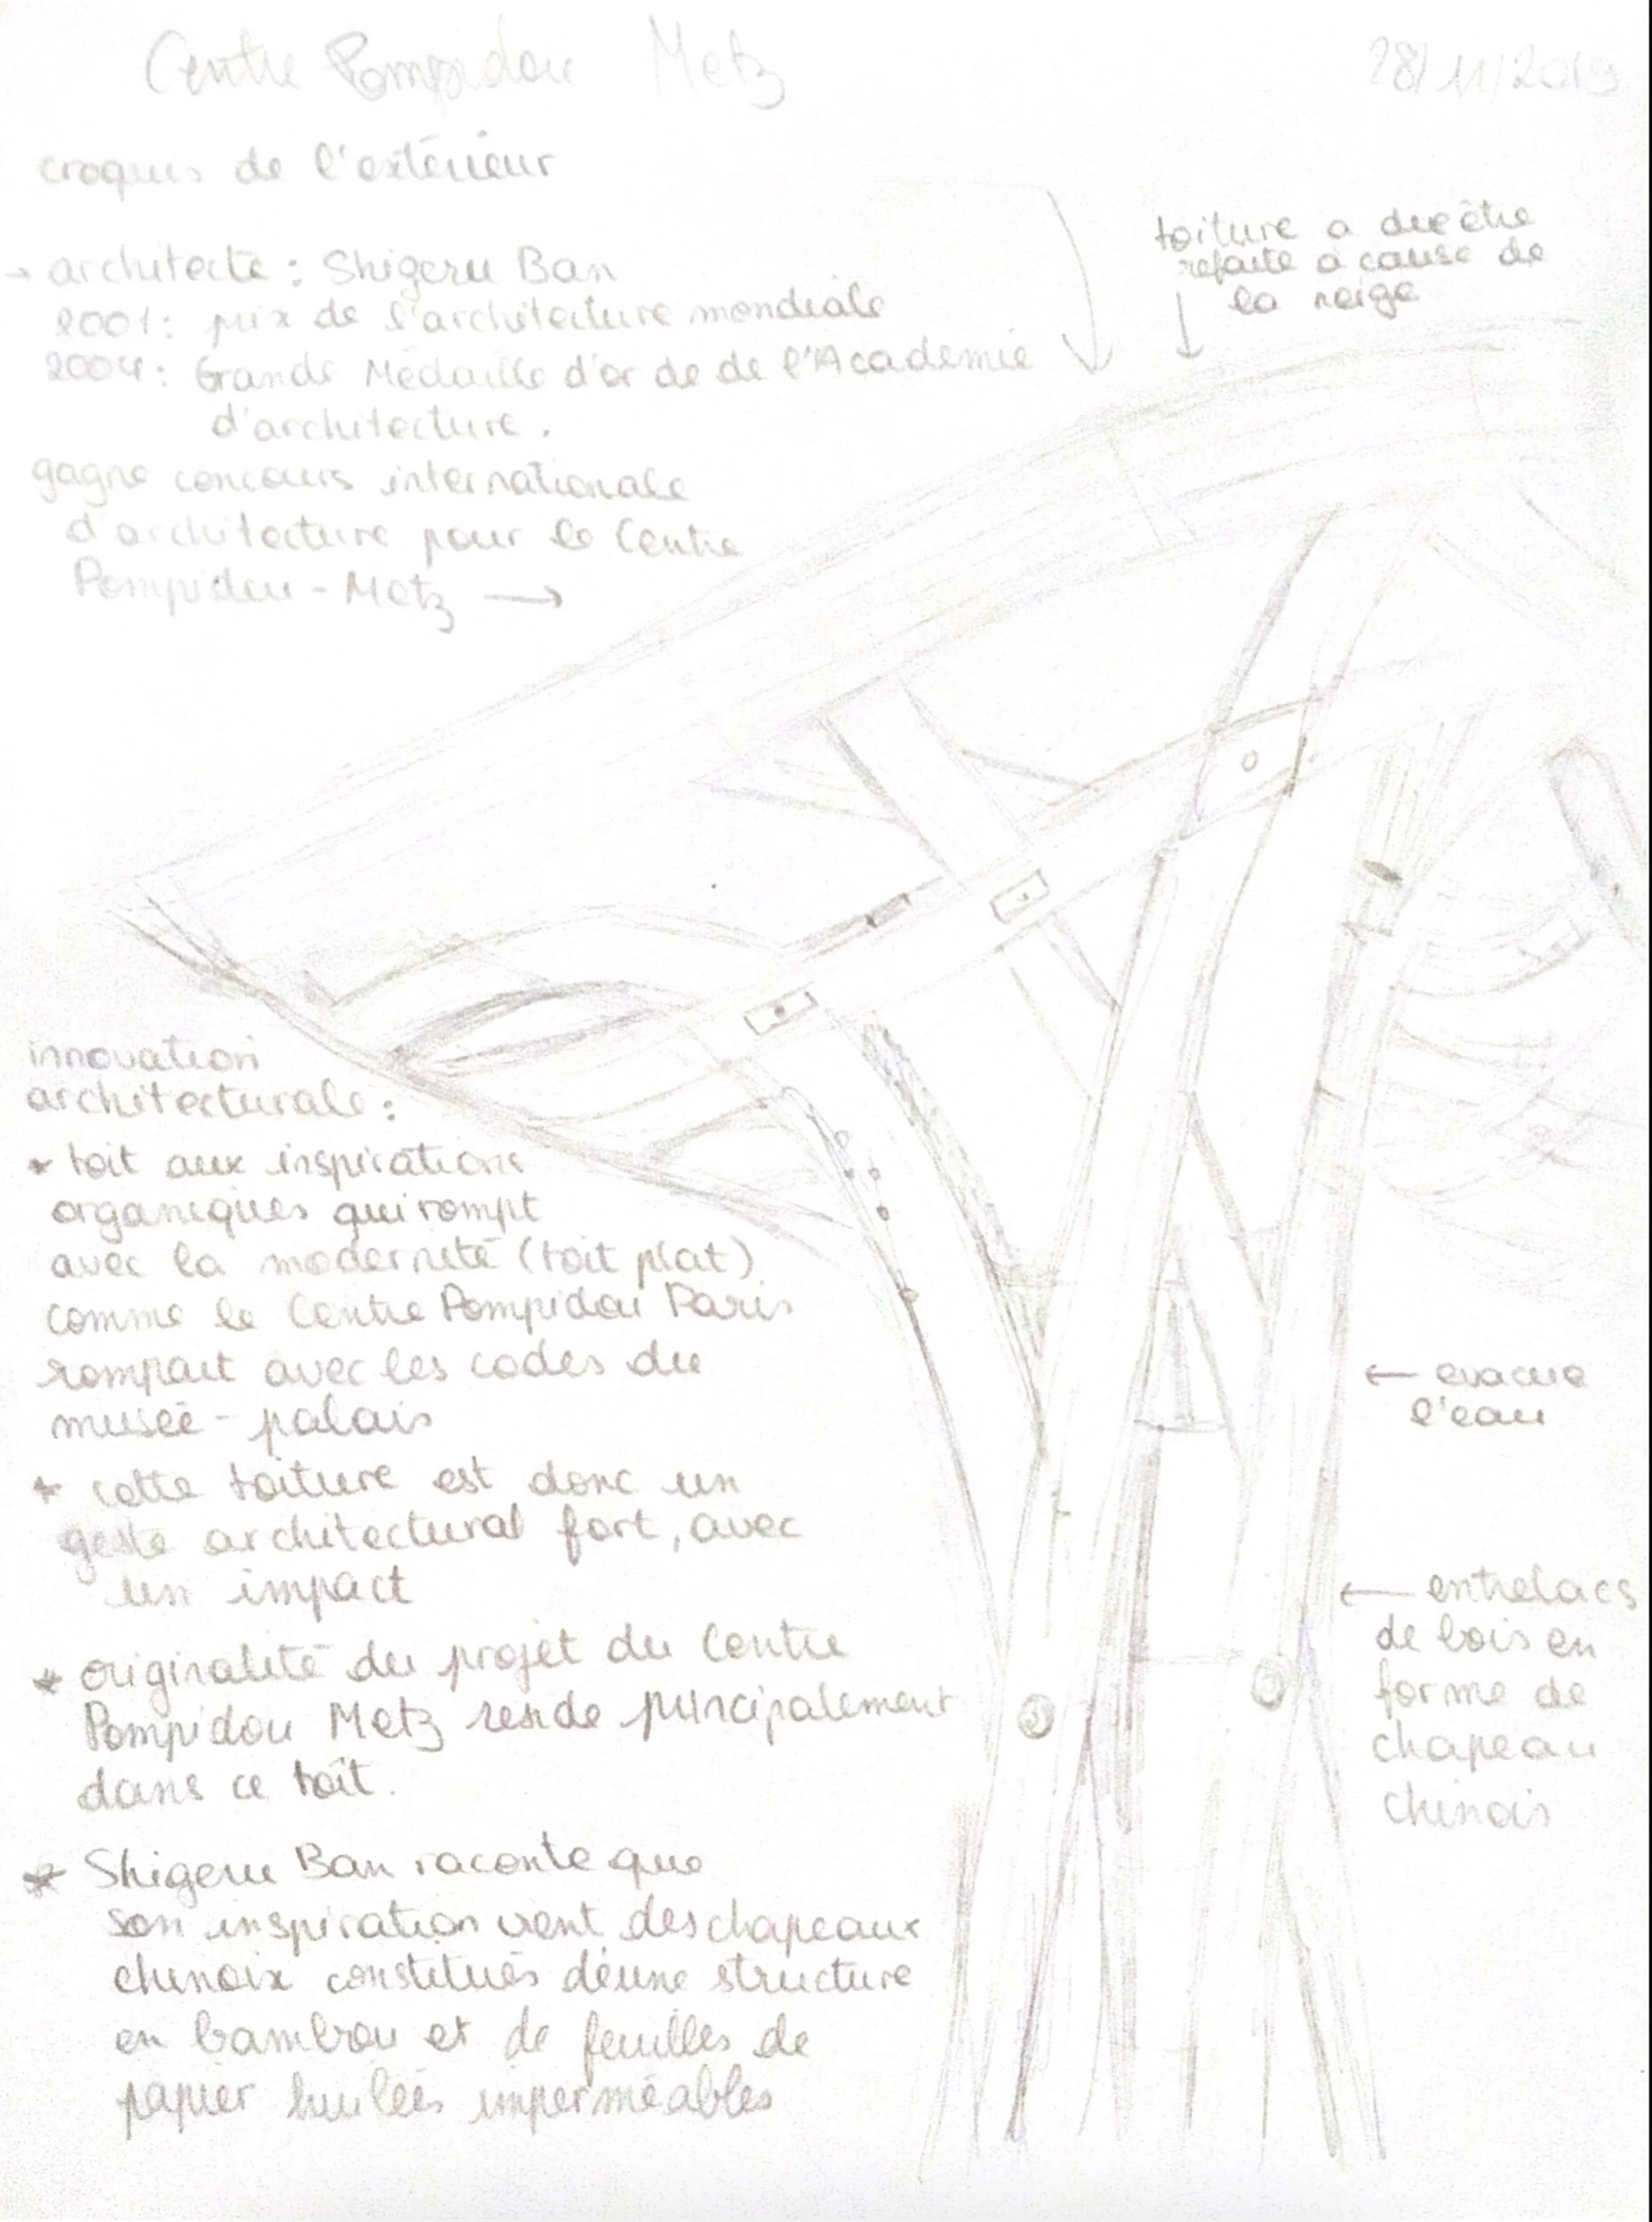 Centre Pompidou Metz
28/11/2019
croquis de l'extérieur
→ architecte : Shigeru Ban
2001 : prix de l'architecture mondiale
2004 : Grande Médaille d'or de de l'Académie
d'architecture.
gagne concours internationale
d'architecture pour le Centre
Pompidou - Metz →
toiture a due être
refaite à cause de
la neige
innovation
architecturale :
* toit aux inspirations
organiques qui rompt
avec la modernité (toit plat)
comme le Centre Pompidou Paris
rompait avec les codes du
musée - palais
* cette toiture est donc un
geste architectural fort, avec
un impact
* originalité du projet du Centre
Pompidou Metz reside principalement
dans ce toît.
* Shigeru Ban raconte que
son inspiration vient des chapeaux
chinoix constitués d'eune structure
en bambou et de feuilles de
papier huilées imperméables
← evacue
l'eau
← entrelacs
de bois en
forme de
chapeau
chinois